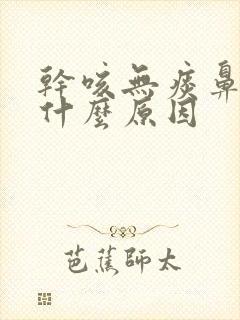 幹咳無痰鼻
什麼原因
芭蕉師太